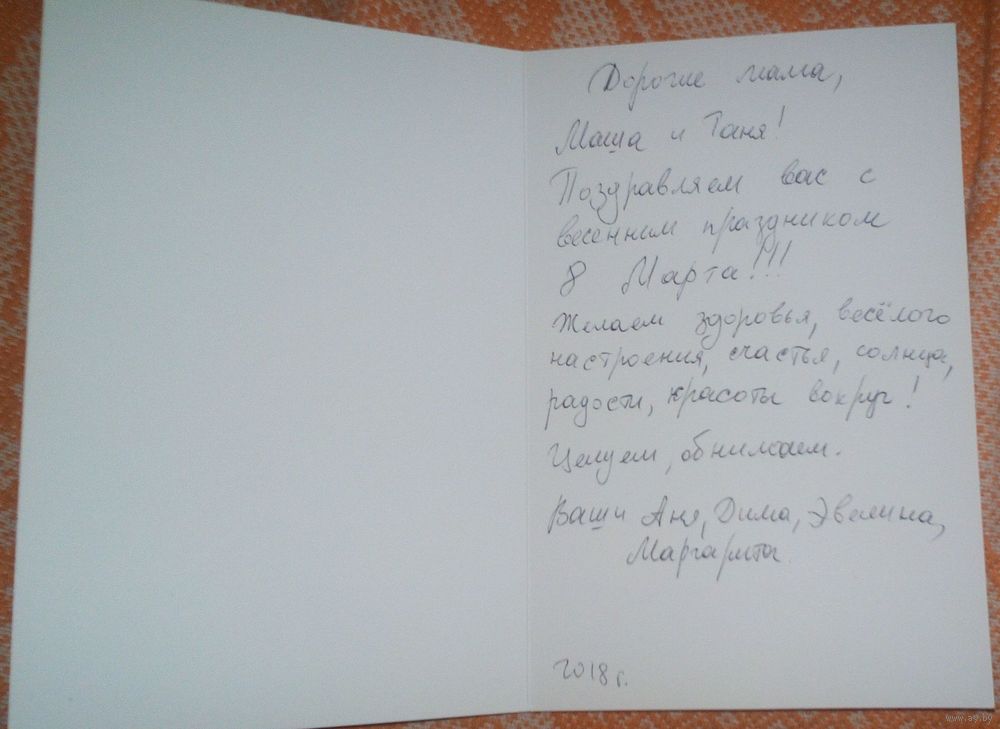 Дорогие мама,
Маша и Таня!
Поздравляем вас с
весенним праздником
8 Марта!!!
Желаем здоровья, весёлого
настроения, счастья, солнца,
радости, красоты вокруг!
Целуем, обнимаем.
Ваши Аня, Дима, Эвелина,
Маргарита.
2018 г.
www.ay.by